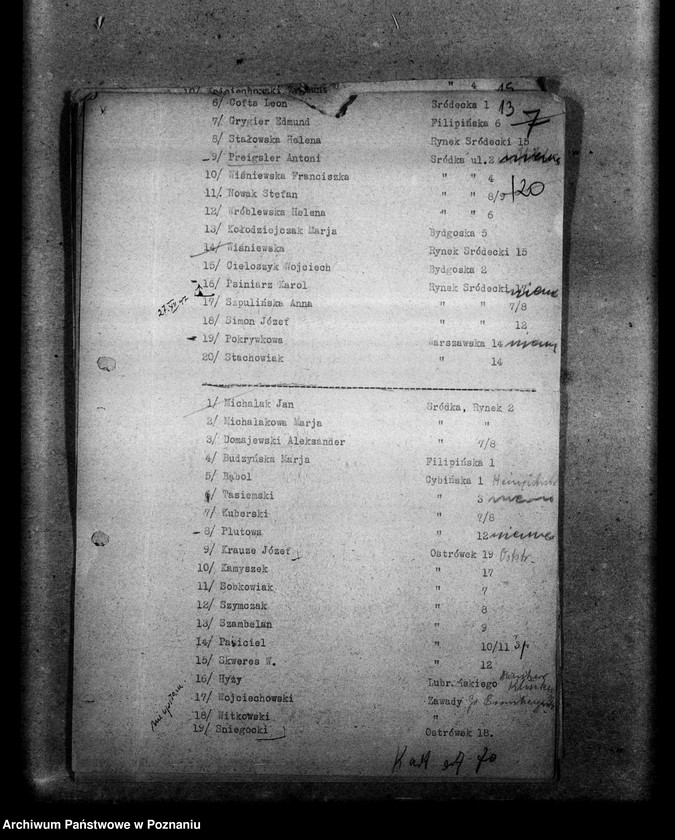 6/ Cofta Leon Sródecka 1 13
7/ Grygier Edmund Filipińska 6 7
8/ Stałowska Helena Rynek Sródecki 15
9/ Preigsler Antoni Sródka ul.2
10/ Wiśniewska Franciszka " " 4
11/ Nowak Stefan " " 8/9 120
12/ Wróblewska Helena " " 6
13/ Kołodziejczak Marja Bydgoska 5
14/ Wiśniewska Rynek Sródecki 15
15/ Cieloszyk Wojciech Bydgoska 2
16/ Psiniarz Karol Rynek Sródecki
17/ Szpulińska Anna " " 7/8
18/ Simon Józef " " 12
19/ Pokrywkowa Warszawska 14
20/ Stachowiak " 14
1/ Michalak Jan Sródka, Rynek 2
2/ Michalakowa Marja " "
3/ Domajewski Aleksander " 7/8
4/ Budzyńska Marja Filipińska 1
5/ Bąbol Cybińska 1
6/ Tasiemski " 3
7/ Kuberski " 7/8
8/ Plutowa " 12
9/ Krauze Józef Ostrówek 19
10/ Kamyszek " 17
11/ Sobkowiak " 7
12/ Szymczak " 8
13/ Szambelan " 9
14/ Paściciel " 10/11
15/ Skweres W. " 12
16/ Hyży Lubrańskiego
17/ Wojciechowski Zawady
18/ Witkowski "
19/ Sniegocki Ostrówek 18.
Archiwum Państwowe w Poznaniu